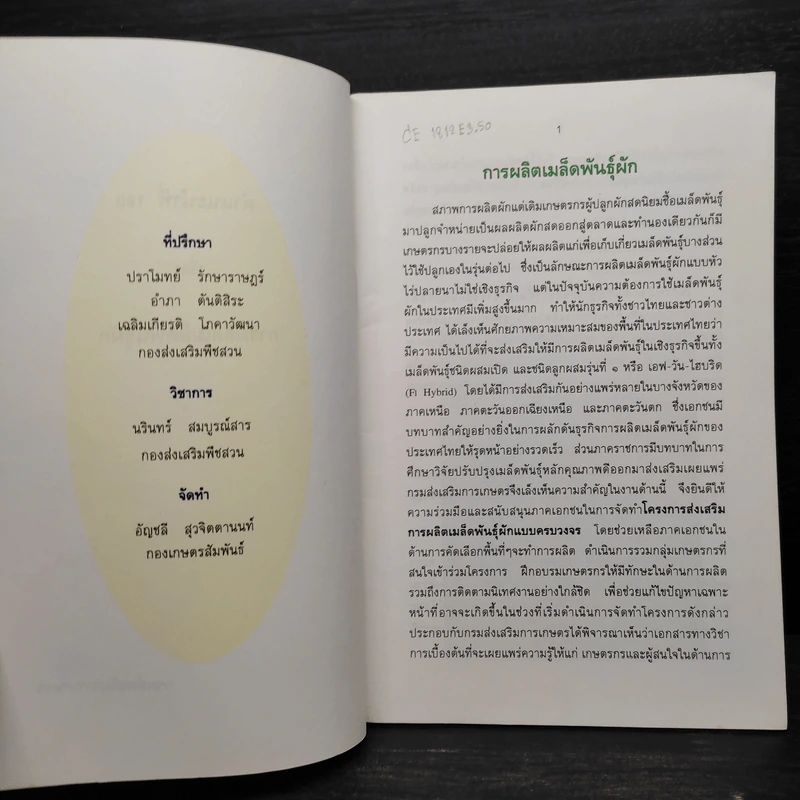 ที่ปรึกษา
ปราโมทย์ รักษาราษฎร์
อำภา ตันติสิระ
เฉลิมเกียรติ โภคาวัฒนา
กองส่งเสริมพืชสวน
วิชาการ
นรินทร์ สมบูรณ์สาร
กองส่งเสริมพืชสวน
จัดทำ
อัญชลี สุวจิตตานนท์
กองเกษตรสัมพันธ์
1
การผลิตเมล็ดพันธุ์ผัก
สภาพการผลิตผักแต่เดิมเกษตรกรผู้ปลูกผักสดนิยมซื้อเมล็ดพันธุ์
มาปลูกจำหน่ายเป็นผลผลิตผักสดออกสู่ตลาดและทำนองเดียวกันก็มี
เกษตรกรบางรายจะปล่อยให้ผลผลิตแก่เพื่อเก็บเกี่ยวเมล็ดพันธุ์บางส่วน
ไว้ใช้ปลูกเองในรุ่นต่อไป ซึ่งเป็นลักษณะการผลิตเมล็ดพันธุ์ผักแบบหัว
ไร่ปลายนาไม่ใช่เชิงธุรกิจ แต่ในปัจจุบันความต้องการใช้เมล็ดพันธุ์
ผักในประเทศมีเพิ่มสูงขึ้นมาก ทำให้นักธุรกิจทั้งชาวไทยและชาวต่าง
ประเทศ ได้เล็งเห็นศักยภาพความเหมาะสมของพื้นที่ในประเทศไทยว่า
มีความเป็นไปได้ที่จะส่งเสริมให้มีการผลิตเมล็ดพันธุ์ในเชิงธุรกิจขึ้นทั้ง
เมล็ดพันธุ์ชนิดผสมเปิด และชนิดลูกผสมรุ่นที่ ๑ หรือ เอฟ-วัน-ไฮบริด
(Fi Hybrid) โดยได้มีการส่งเสริมกันอย่างแพร่หลายในบางจังหวัดของ
ภาคเหนือ ภาคตะวันออกเฉียงเหนือ และภาคตะวันตก ซึ่งเอกชนมี
บทบาทสำคัญอย่างยิ่งในการผลักดันธุรกิจการผลิตเมล็ดพันธุ์ผักของ
ประเทศไทยให้รุดหน้าอย่างรวดเร็ว ส่วนภาคราชการมีบทบาทในการ
ศึกษาวิจัยปรับปรุงเมล็ดพันธุ์หลักคุณภาพดีออกมาส่งเสริมเผยแพร่
กรมส่งเสริมการเกษตรจึงเล็งเห็นความสำคัญในงานด้านนี้ จึงยินดีให้
ความร่วมมือและสนับสนุนภาคเอกชนในการจัดทำโครงการส่งเสริม
การผลิตเมล็ดพันธุ์ผักแบบครบวงจร โดยช่วยเหลือภาคเอกชนใน
ด้านการคัดเลือกพื้นที่ๆจะทำการผลิต ดำเนินการรวมกลุ่มเกษตรกรที่
สนใจเข้าร่วมโครงการ ฝึกอบรมเกษตรกรให้มีทักษะในด้านการผลิต
รวมถึงการติดตามนิเทศงานอย่างใกล้ชิด เพื่อช่วยแก้ไขปัญหาเฉพาะ
หน้าที่อาจจะเกิดขึ้นในช่วงที่เริ่มดำเนินการจัดทำโครงการดังกล่าว
ประกอบกับกรมส่งเสริมการเกษตรได้พิจารณาเห็นว่าเอกสารทางวิชา
การเบื้องต้นที่จะเผยแพร่ความรู้ให้แก่ เกษตรกรและผู้สนใจในด้านการ